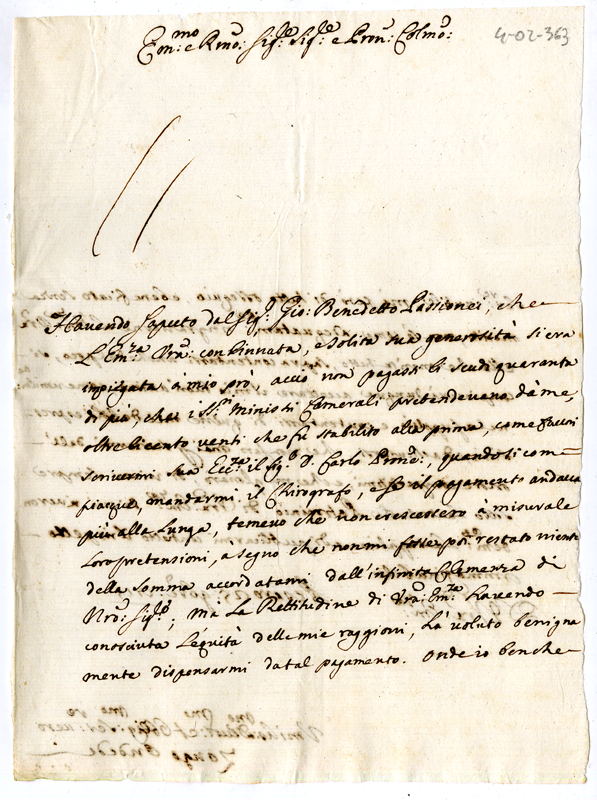 Em̃:mo e Rmõ: Sig:re Sig:re e Pron̄: Colmõ:
4-02-363
Havendo saputo dal Sig:r Gio: Benedetto Passionei, che
L'Em:za Vrã: con l'innata, e solita sua generosità si era
impiegata à mio prò, acciò non pagassi li scudi quaranta
di più, che i SS:ri Ministri Camerali pretendevano dà me,
oltre li cento venti che fù stabilito alla prima, come favorì
scrivermi sua Ecc:za il Sig:r D. Carlo Pron̄e:, quando si com=
piacque mandarmi il Chirografo, e se il pagamento andava
più alla lunga, temevo che non crescessero à misura le
loro pretensioni, à segno che non mi fosse poi restato niente
della somma accordatami dall'infinita Clemenza di
Nrõ: Sig:re; mà la Rettitudine di Vrã: Em:za havendo
conosciuta l'equità delle mie raggioni, hà voluto benigna
mente dispensarmi da tal pagamento. Onde io benche